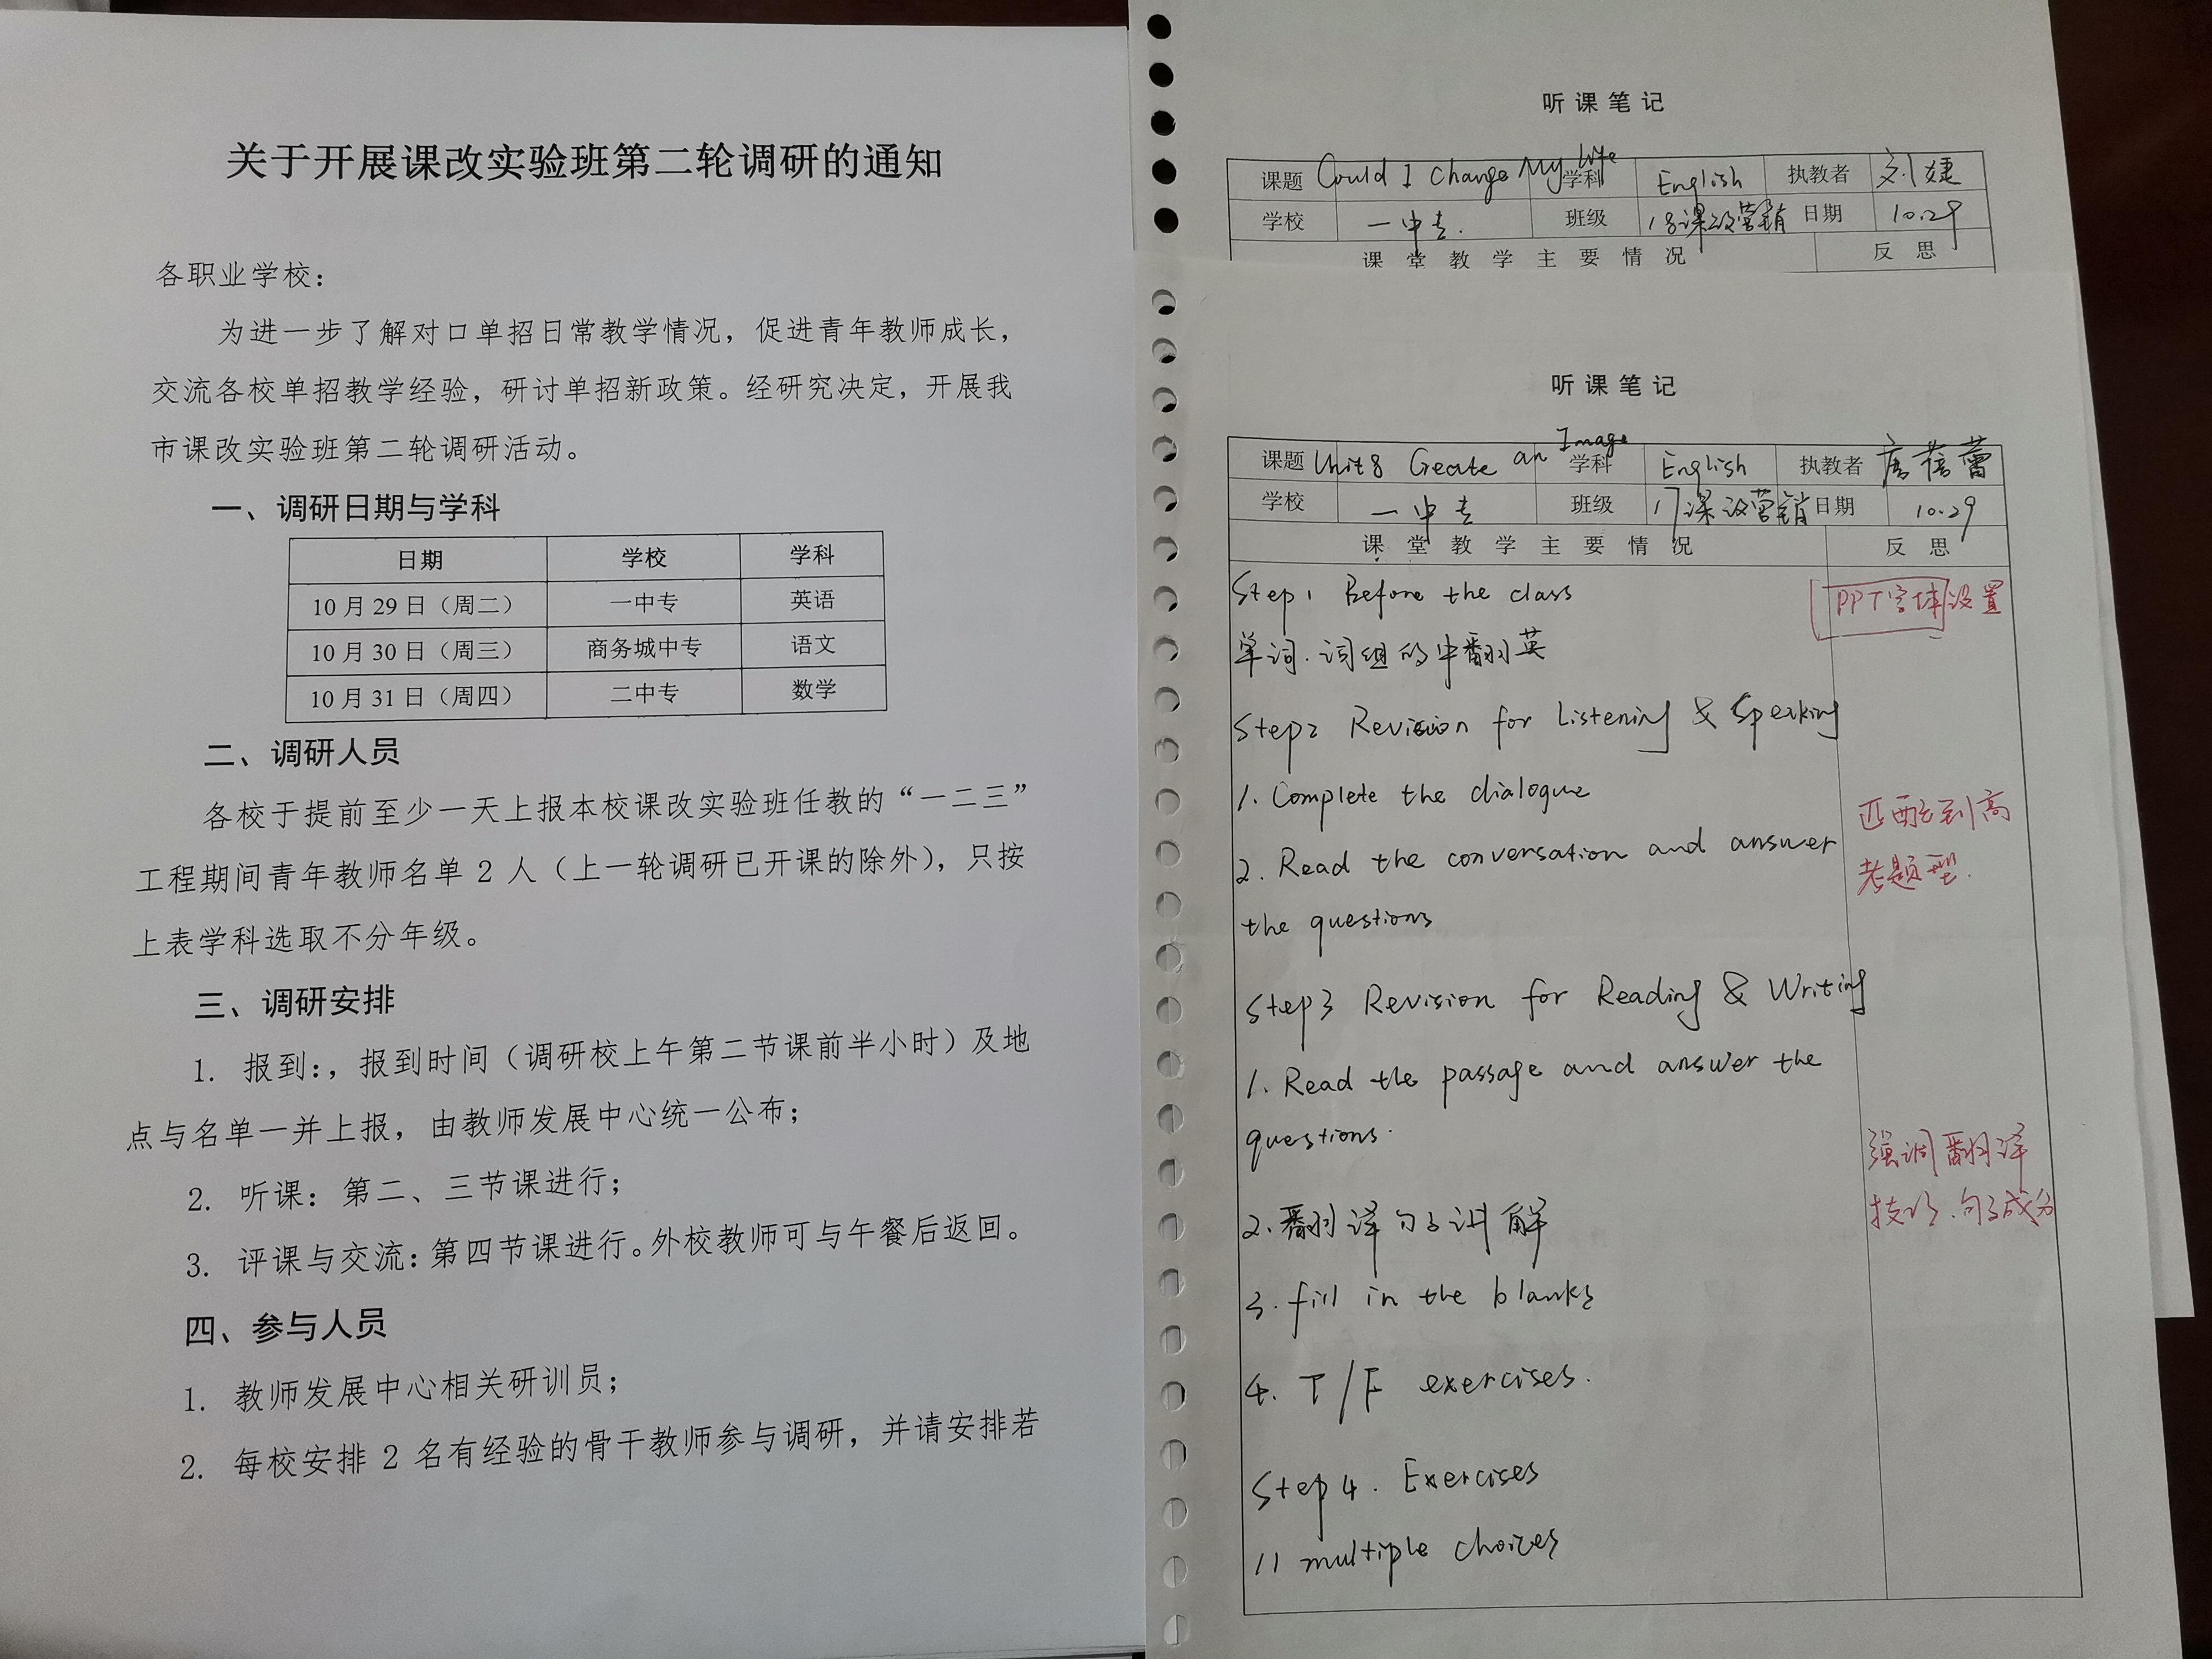 关于开展课改实验班第二轮调研的通知
各职业学校：
为进一步了解对口单招日常教学情况，促进青年教师成长，
交流各校单招教学经验，研讨单招新政策。经研究决定，开展我
市课改实验班第二轮调研活动。
一、调研日期与学科
日期 学校 学科
10月29日（周二） 一中专 英语
10月30日（周三） 商务城中专 语文
10月31日（周四） 二中专 数学
二、调研人员
各校于提前至少一天上报本校课改实验班任教的“一二三”
工程期间青年教师名单2人（上一轮调研已开课的除外），只按
上表学科选取不分年级。
三、调研安排
1. 报到：，报到时间（调研校上午第二节课前半小时）及地
点与名单一并上报，由教师发展中心统一公布；
2. 听课：第二、三节课进行；
3. 评课与交流：第四节课进行。外校教师可与午餐后返回。
四、参与人员
1. 教师发展中心相关研训员；
2. 每校安排2名有经验的骨干教师参与调研，并请安排若
听课笔记
课题 Could I Change My life 学科 English 执教者 刘婕
学校 一中专. 班级 18课改营销 日期 10.29
课堂教学主要情况 反思
听课笔记
课题 Unit8 Create an Image 学科 English 执教者 唐蓓蕾
学校 一中专 班级 17课改营销 日期 10.29
课堂教学主要情况 反思
Step1 Before the class
PPT字体设置
单词.词组的中翻英
Step2 Revision for Listening & Speaking
1. Complete the dialogue
匹配到高
2. Read the conversation and answer
考题型.
the questions
Step3 Revision for Reading & Writing
1. Read the passage and answer the
questions.
强调翻译
技巧.句子成分
2.翻译句子讲解
3. fill in the blanks
4. T/F exercises.
Step4. Exercises
11 multiple choices